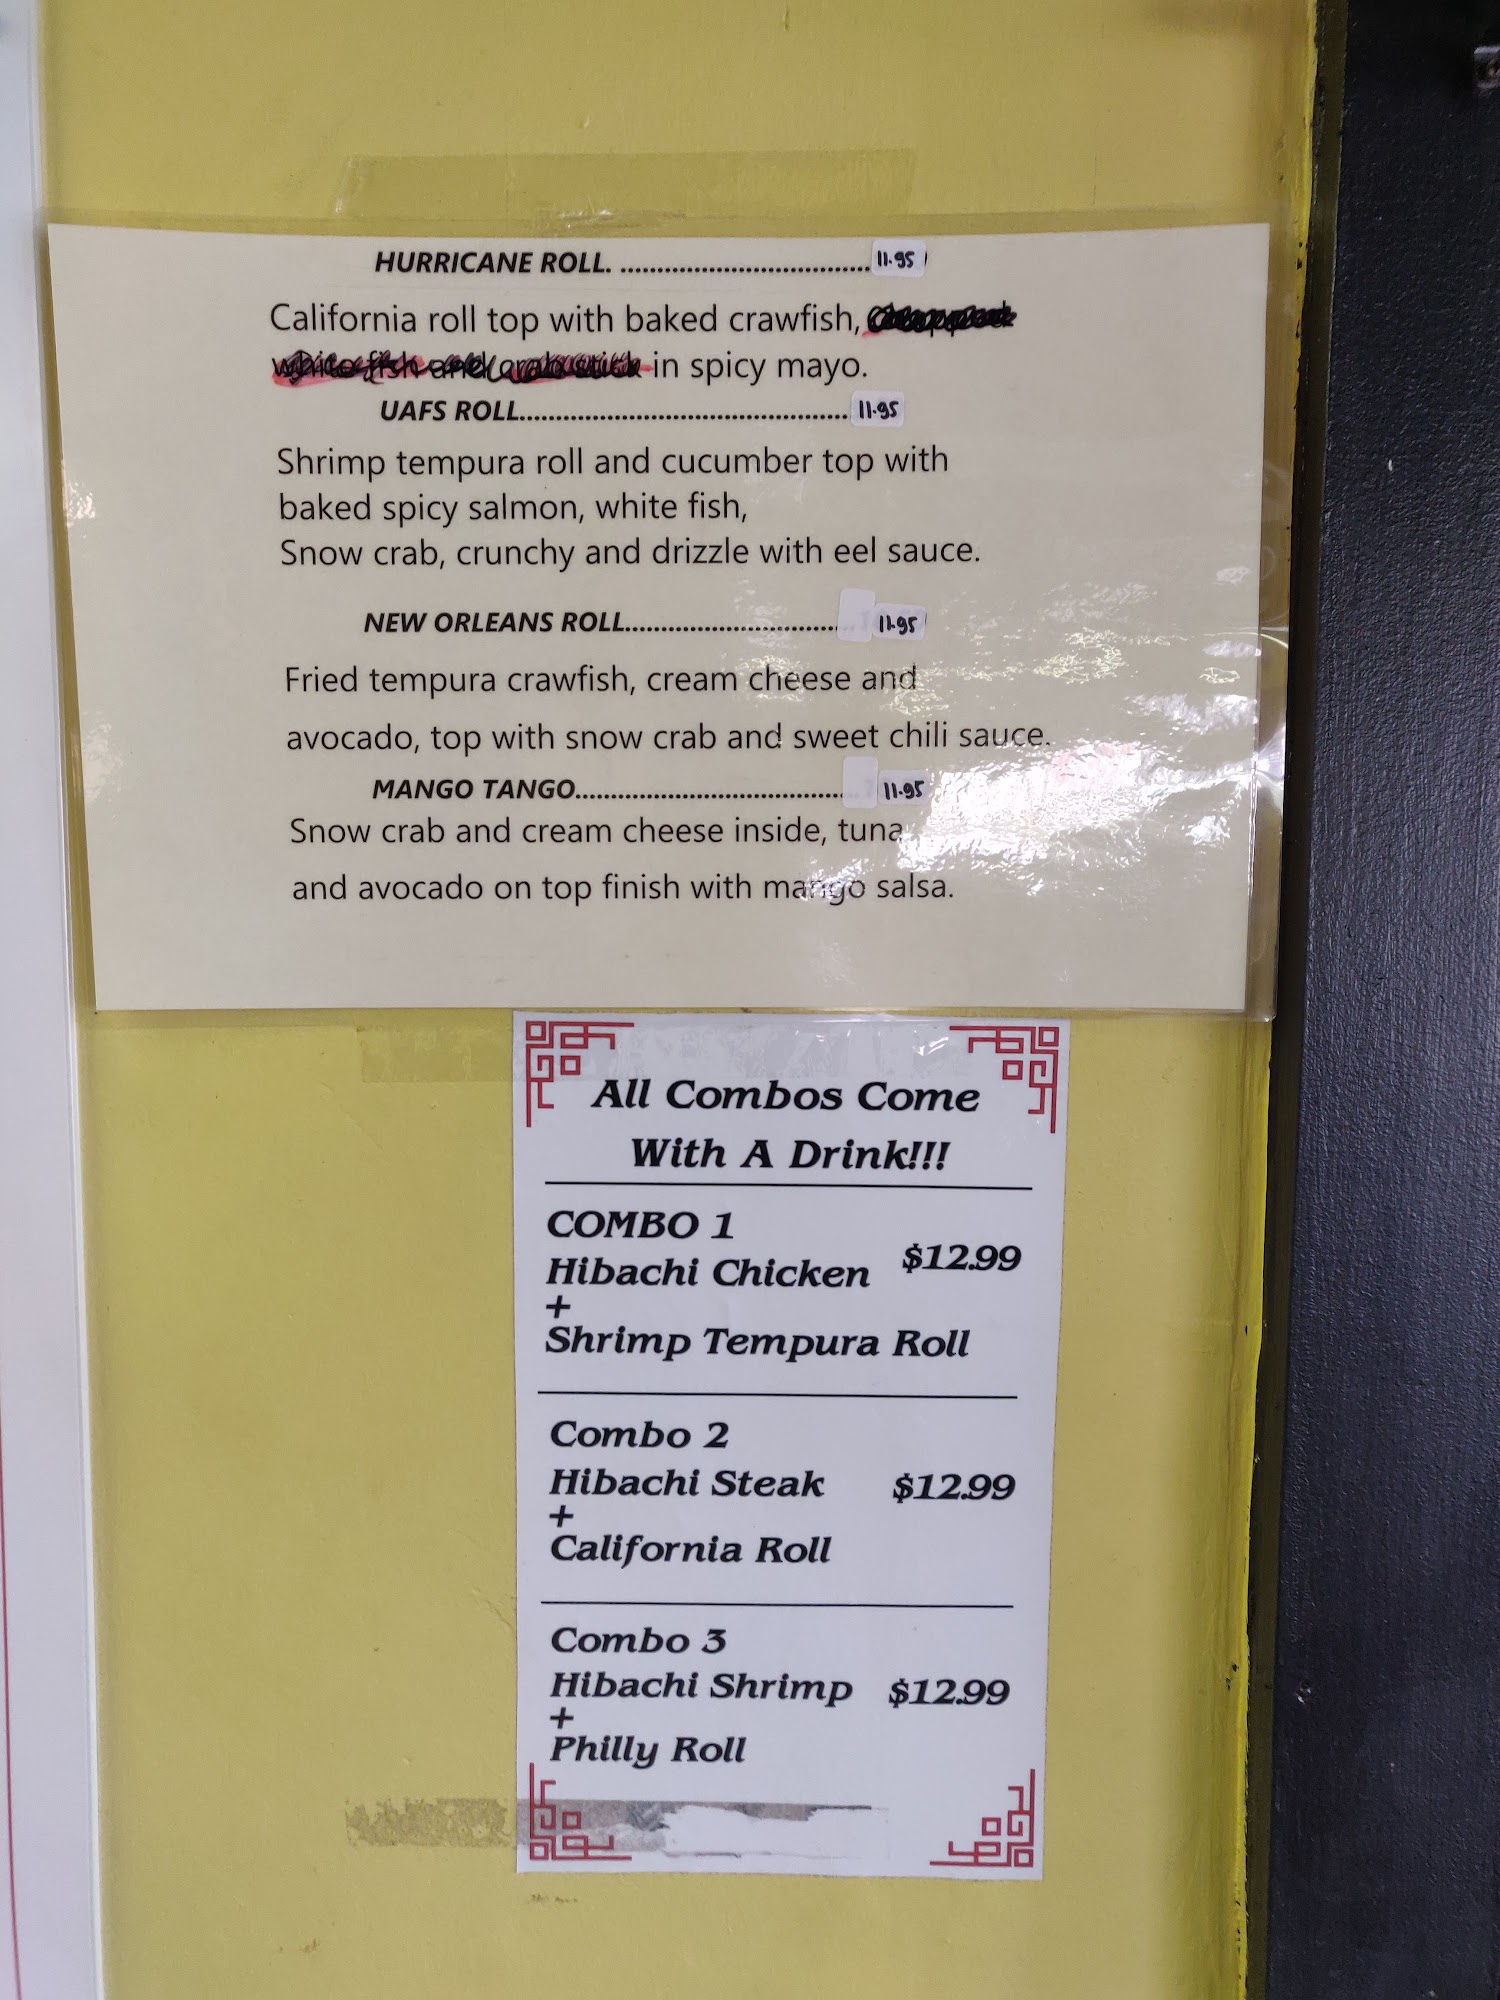 HURRICANE ROLL. ........................................ 11.95
California roll top with baked crawfish,
white fish and crab stick in spicy mayo.
UAFS ROLL.................................................... 11.95
Shrimp tempura roll and cucumber top with
baked spicy salmon, white fish,
Snow crab, crunchy and drizzle with eel sauce.
NEW ORLEANS ROLL.................................. 11.95
Fried tempura crawfish, cream cheese and
avocado, top with snow crab and sweet chili sauce.
MANGO TANGO.......................................... 11.95
Snow crab and cream cheese inside, tuna
and avocado on top finish with mango salsa.
All Combos Come
With A Drink!!!
COMBO 1
Hibachi Chicken $12.99
+
Shrimp Tempura Roll
Combo 2
Hibachi Steak $12.99
+
California Roll
Combo 3
Hibachi Shrimp $12.99
+
Philly Roll